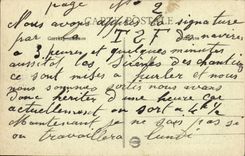 page No 2
CARTE POSTALE
Nous avons appris la signature
par la T S F des navires
Correspondance
a 3 heures et quelques minutes
aussitot les Sirènes des chantiers
ce sont mises a hurler et nous
nous sommes sortis nous avons
donc hériter d'une heure car
actuellement on sort a 4h ½
maintenant je ne sais pas si
on travaillera lundi